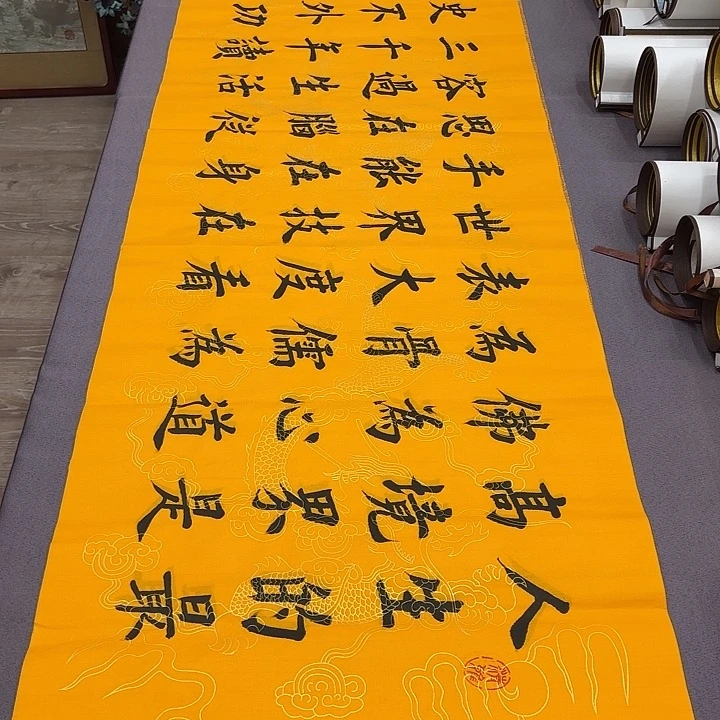 人生的最
高境界是
佛為心道
為骨儒為
表大度看
世界技在
手能在身
思在腦從
容過生活
三千年讀
史不外功